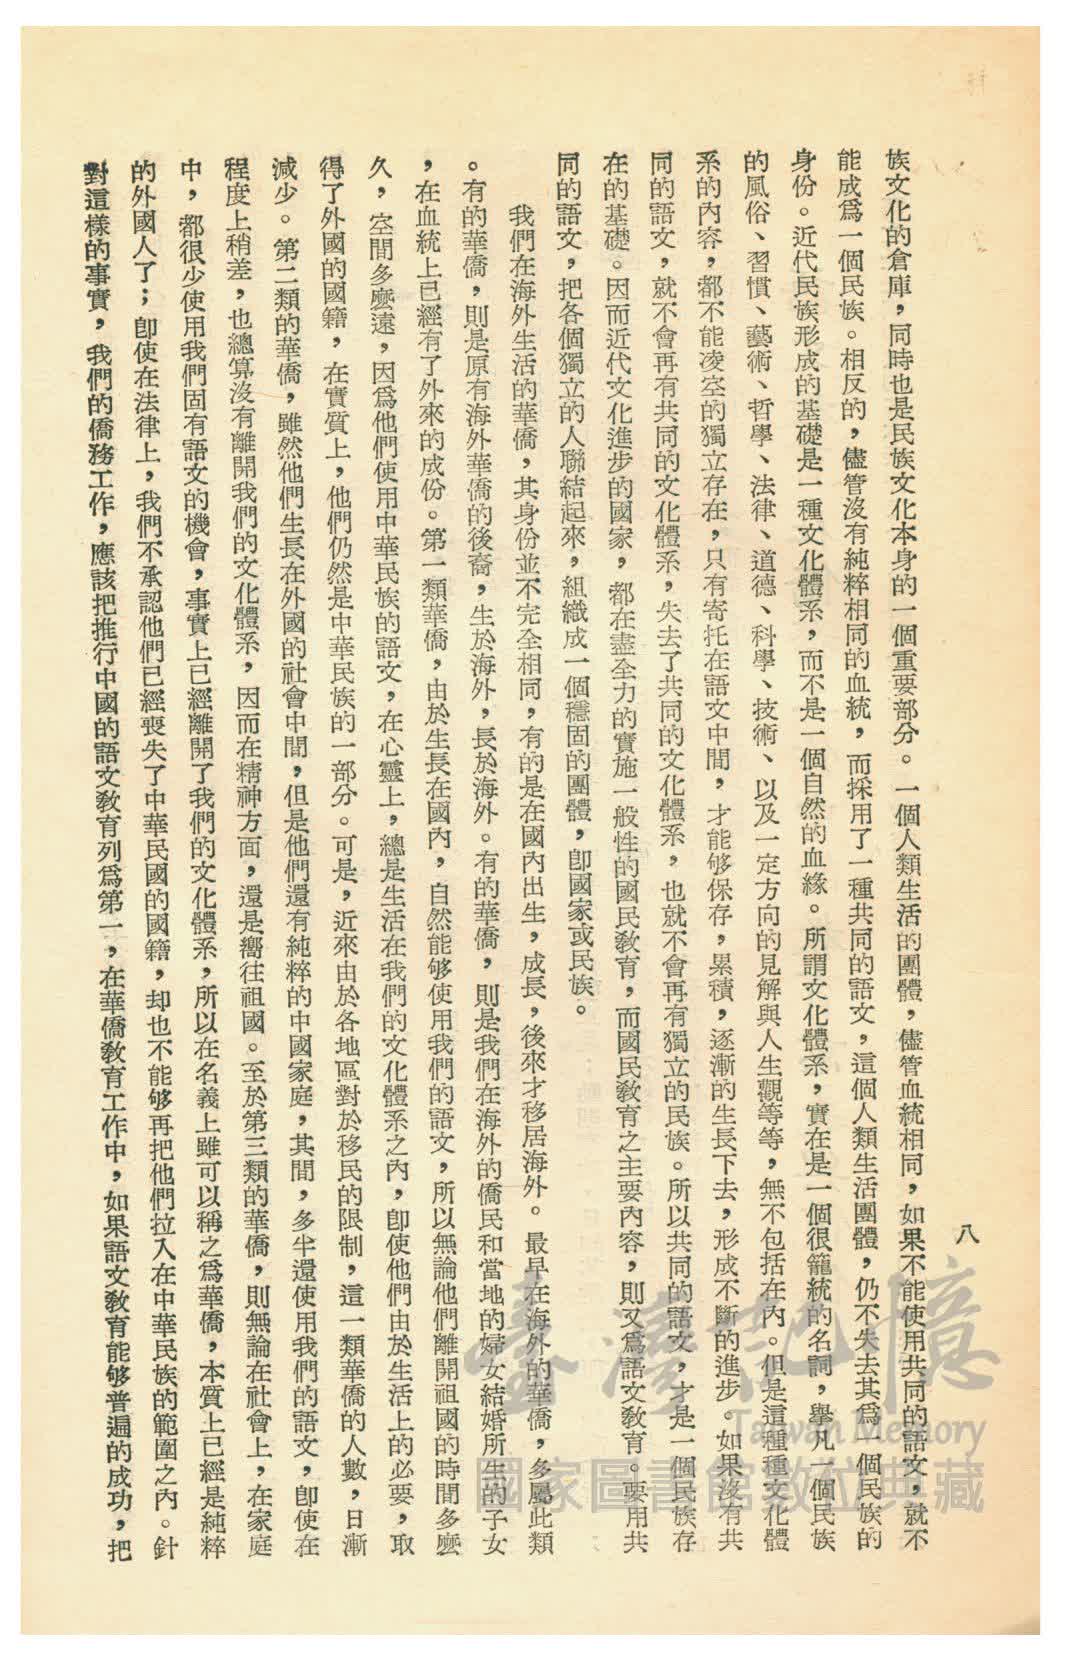 八
族文化的倉庫，同時也是民族文化本身的一個重要部分。一個人類生活的團體，儘管血統相同，如果不能使用共同的語文，就不
能成爲一個民族。相反的，儘管沒有純粹相同的血統，而採用了一種共同的語文，這個人類生活團體，仍不失去其爲一個民族的
身份。近代民族形成的基礎是一種文化體系，而不是一個自然的血緣。所謂文化體系，實在是一個很籠統的名詞，舉凡一個民族
的風俗、習慣、藝術、哲學、法律、道德、科學、技術、以及一定方向的見解與人生觀等等，無不包括在內。但是這種種文化體
系的內容，都不能凌空的獨立存在，只有寄托在語文中間，才能够保存，累積，逐漸的生長下去，形成不斷的進步。如果沒有共
同的語文，就不會再有共同的文化體系，失去了共同的文化體系，也就不會再有獨立的民族。所以共同的語文，才是一個民族存
在的基礎。因而近代文化進步的國家，都在盡全力的實施一般性的國民教育，而國民教育之主要內容，則又爲語文教育。要用共
同的語文，把各個獨立的人聯結起來，組織成一個穩固的團體，卽國家或民族。
我們在海外生活的華僑，其身份並不完全相同，有的是在國內出生，成長，後來才移居海外。最早在海外的華僑，多屬此類
。有的華僑，則是原有海外華僑的後裔，生於海外，長於海外。有的華僑，則是我們在海外的僑民和當地的婦女結婚所生的子女
，在血統上已經有了外來的成份。第一類華僑，由於生長在國內，自然能够使用我們的語文，所以無論他們離開祖國的時間多麼
久，空間多麼遠，因爲他們使用中華民族的語文，在心靈上，總是生活在我們的文化體系之內，卽使他們由於生活上的必要，取
得了外國的國籍，在實質上，他們仍然是中華民族的一部分。可是，近來由於各地區對於移民的限制，這一類華僑的人數，日漸
減少。第二類的華僑，雖然他們生長在外國的社會中間，但是他們還有純粹的中國家庭，其間，多半還使用我們的語文，卽使在
程度上稍差，也總算沒有離開我們的文化體系，因而在精神方面，還是嚮往祖國。至於第三類的華僑，則無論在社會上，在家庭
中，都很少使用我們固有語文的機會，事實上已經離開了我們的文化體系，所以在名義上雖可以稱之爲華僑，本質上已經是純粹
的外國人了；卽使在法律上，我們不承認他們已經喪失了中華民國的國籍，却也不能够再把他們拉入在中華民族的範圍之內。針
對這樣的事實，我們的僑務工作，應該把推行中國的語文教育列爲第一，在華僑教育工作中，如果語文教育能够普遍的成功，把
臺灣記憶
Taiwan Memory
國家圖書館數位典藏